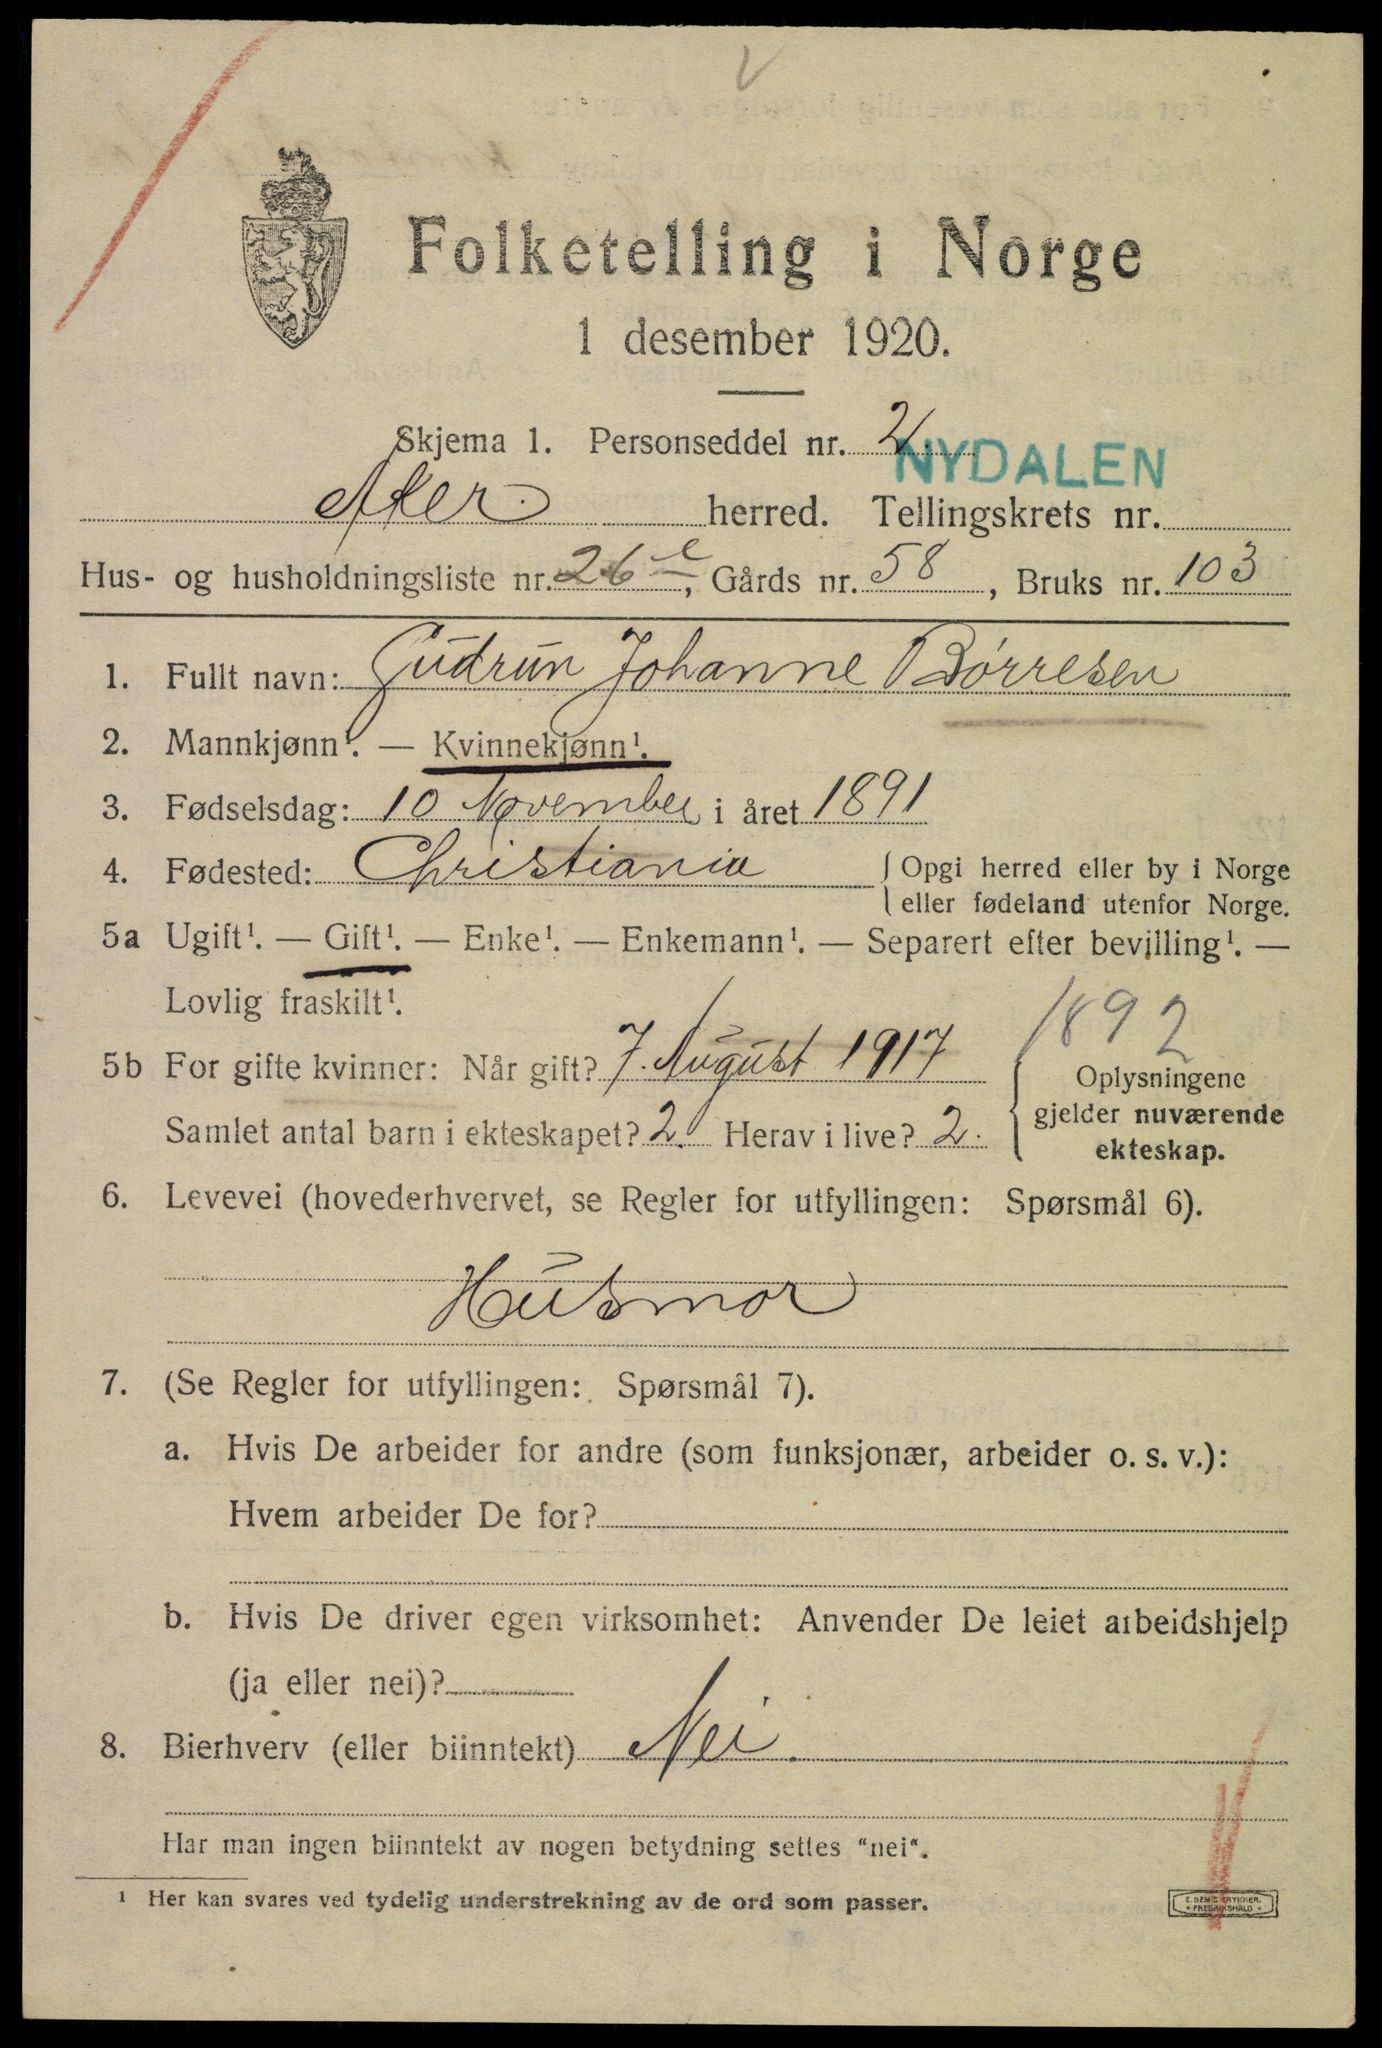 Folketelling i Norge
1 desember 1920.
Skjema 1. Personseddel nr. 2.
NYDALEN
Aker. herred. Tellingskrets nr.
Hus- og husholdningsliste nr. 26 e, Gårds nr. 58, Bruks nr. 103
1. Fullt navn: Gudrun Johanne Børresen
2. Mannkjønn¹. — Kvinnekjønn¹.
3. Fødselsdag: 10 November i året 1891
4. Fødested: Christiania { Opgi herred eller by i Norge
eller fødeland utenfor Norge.
5a Ugift¹. — Gift¹. — Enke¹. — Enkemann¹. — Separert efter bevilling¹. —
Lovlig fraskilt¹.
1892
5b For gifte kvinner: Når gift? 7. August 1917
Samlet antal barn i ekteskapet? 2. Herav i live? 2.
Oplysningene
gjelder nuværende
ekteskap.
6. Levevei (hovederhvervet, se Regler for utfyllingen: Spørsmål 6).
Husmor
7. (Se Regler for utfyllingen: Spørsmål 7).
a. Hvis De arbeider for andre (som funksjonær, arbeider o. s. v.):
Hvem arbeider De for?
b. Hvis De driver egen virksomhet: Anvender De leiet arbeidshjelp
(ja eller nei)?
8. Bierhverv (eller biinntekt) Nei.
Har man ingen biinntekt av nogen betydning settes "nei".
¹ Her kan svares ved tydelig understrekning av de ord som passer.
FREDRIKSHALD